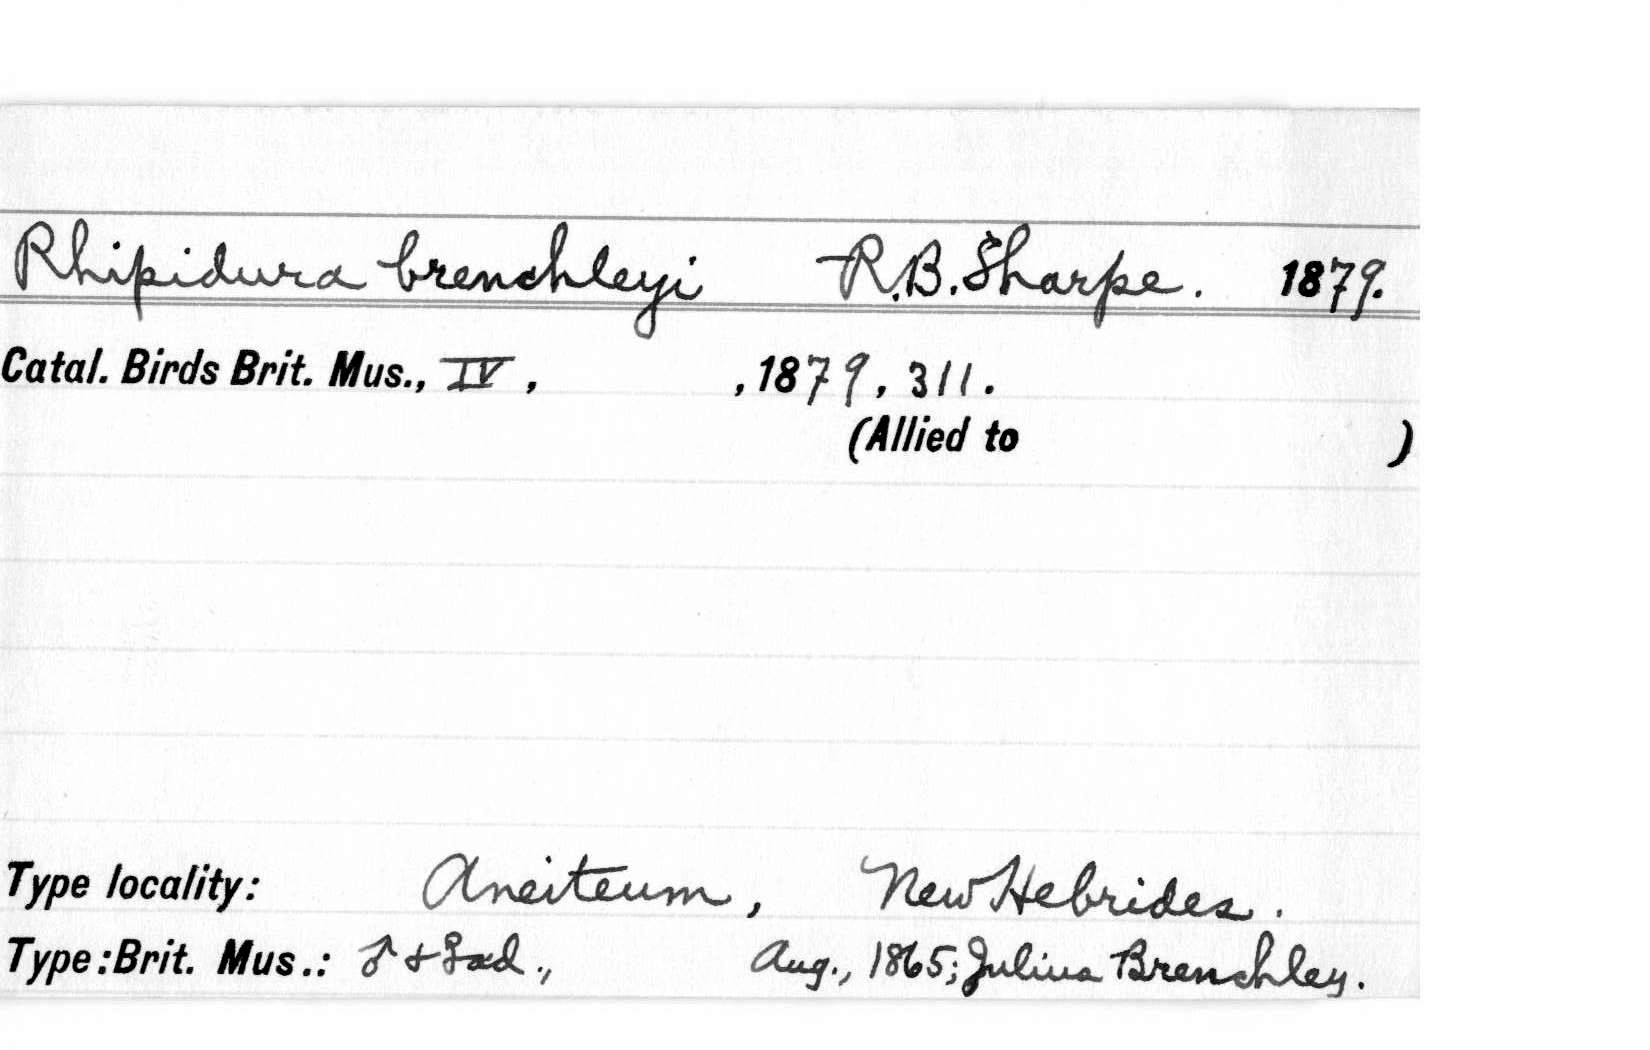 Rhipidura brenchleyi R.B.Sharpe. 1879.
Catal. Birds Brit. Mus., IV, , 1879, 311.
(Allied to )
Type locality: Aneiteum, New Hebrides.
Type:Brit. Mus.: ♂ + ♀ ad., Aug., 1865; Julius Brenchley.